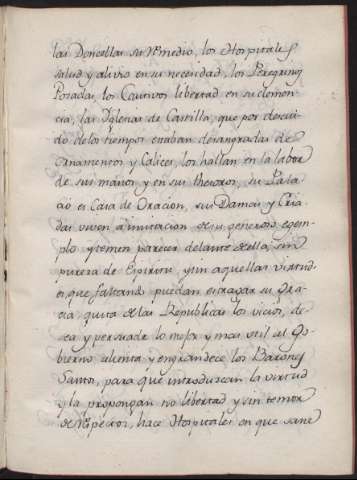 las Doncellas su Remedio, los Hospitales
salud y alivio en su necesidad, los Peregrinos
Posada, los Cautivos libertad en su clemen-
cia, las Iglesias de Castilla, que por descui
do de los tiempos estaban desangradas de
ornamentos y Calices, los hallan en la labor
de sus manos y en sus thesoros, su Pala
cio es Casa de Oracion, sus Damas y Cria
das viven a imitacion de su generoso egem-
plo y temen parecer delante de ella, sin
pureza de Espiritu, y sin aquellas virtud-
es, que faltando puedan estragar su Gra-
cia, quita de las Republicas los vicios, de-
sea y persuade lo mejor y mas util al Go-
bierno alienta y engrandece los Barones
Santos, para que introduscan la virtud
y la propongan con libertad y sin temor
de respectos, hace Hospitales en que sane